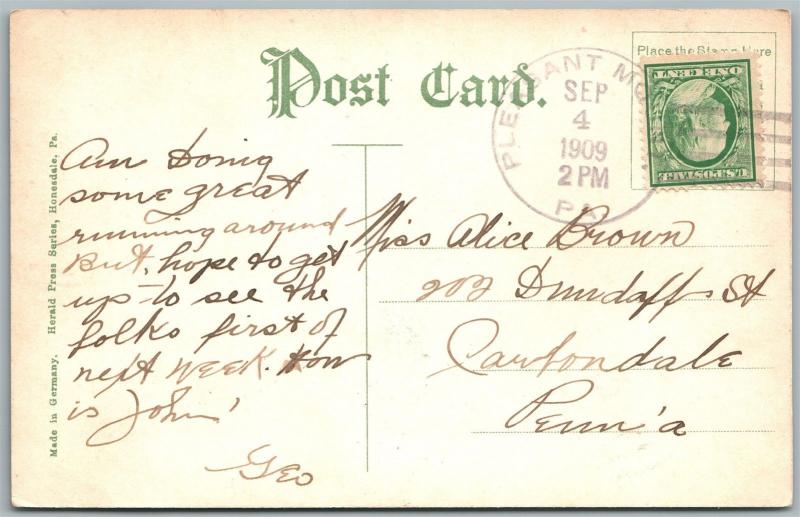 Post Card.
Place the Stamp Here
PLEASANT MO
SEP
4
1909
2 PM
PA
ONE CENT
U.S. POSTAGE
Am doing
some great
running around
But, hope to get
up to see the
folks first of
next week. How
is John'
Geo
Miss Alice Brown
202 Dundaff St
Carbondale
Penn'a
Made in Germany. Herald Press Series, Honesdale, Pa.